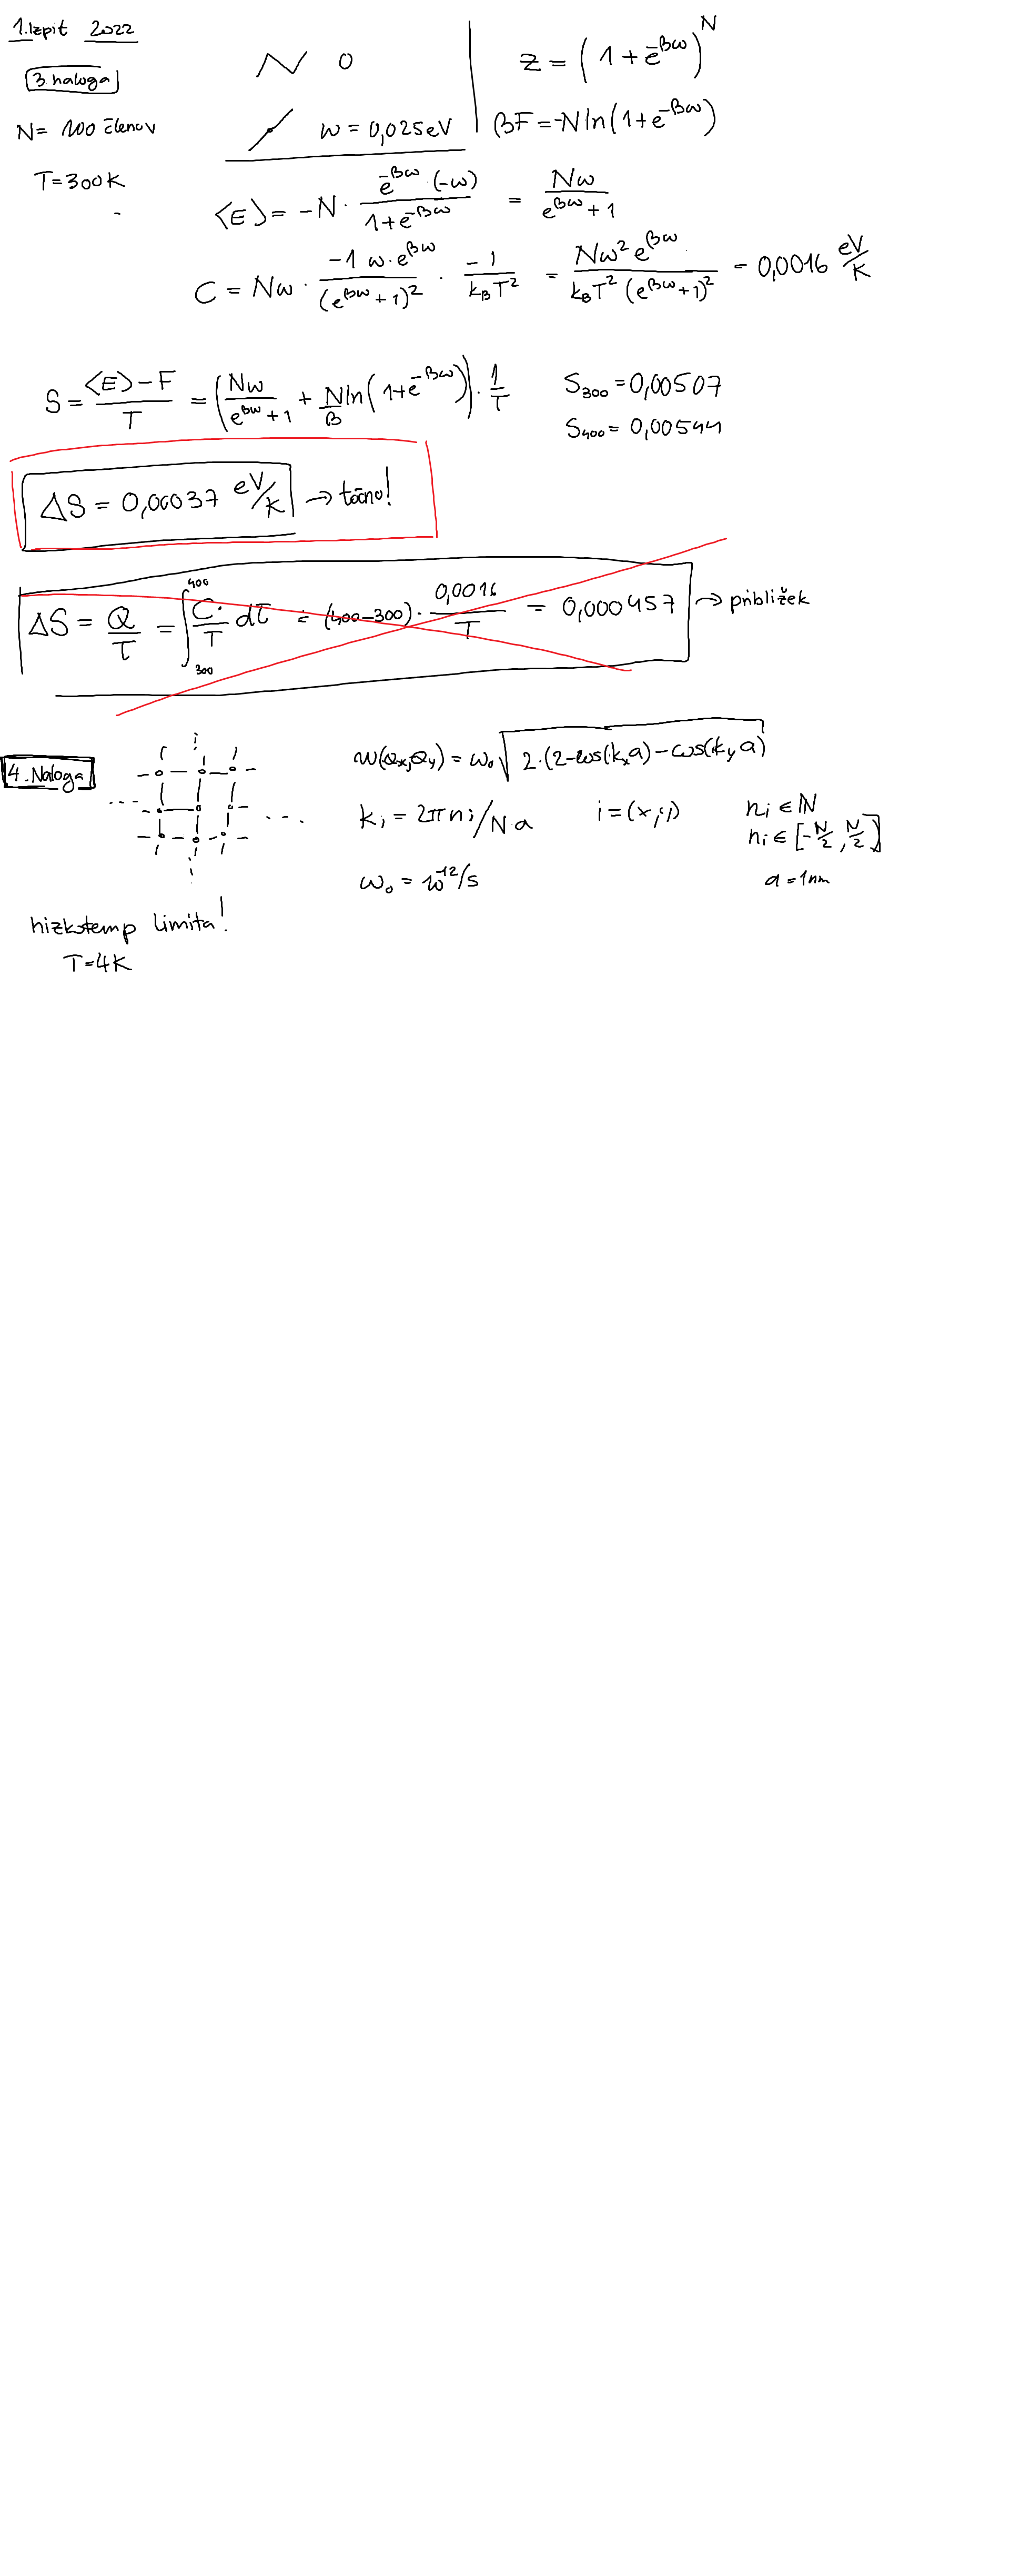 1. Izpit 2022
3. naloga
N = 100 členov
T = 300K
N 0
w = 0,025 eV
Z = (1 + e^{-βw})^N
βF = -N ln(1 + e^{-βw})
⟨E⟩ = -N · \frac{e^{-βw} · (-w)}{1 + e^{-βw}} = \frac{Nw}{e^{βw} + 1}
C = Nw · \frac{-1 w · e^{βw}}{(e^{βw} + 1)^2} · \frac{-1}{k_B T^2} = \frac{Nw^2 e^{βw}}{k_B T^2 (e^{βw} + 1)^2} = 0,0016 \frac{eV}{K}
S = \frac{⟨E⟩ - F}{T} = (\frac{Nw}{e^{βw} + 1} + \frac{N}{β} ln(1 + e^{-βw})) · \frac{1}{T}
S_{300} = 0,00507
S_{400} = 0,00544
ΔS = 0,00037 eV/K → točno!
ΔS = \frac{Q}{T} = ∫_{300}^{400} \frac{C}{T} dT = (400-300) · \frac{0,0016}{T} = 0,000457 → približek
4. Naloga
w(Q_x, Q_y) = ω_0 √{2·(2-cos(k_x a)-cos(k_y a)}
k_i = 2πn_i/N·a i = (x, y) n_i ∈ ℕ
n_i ∈ [-\frac{N}{2}, \frac{N}{2}]
ω_0 = 10^{-12}/s a = 1nm
nizkotemp limita!
T = 4K